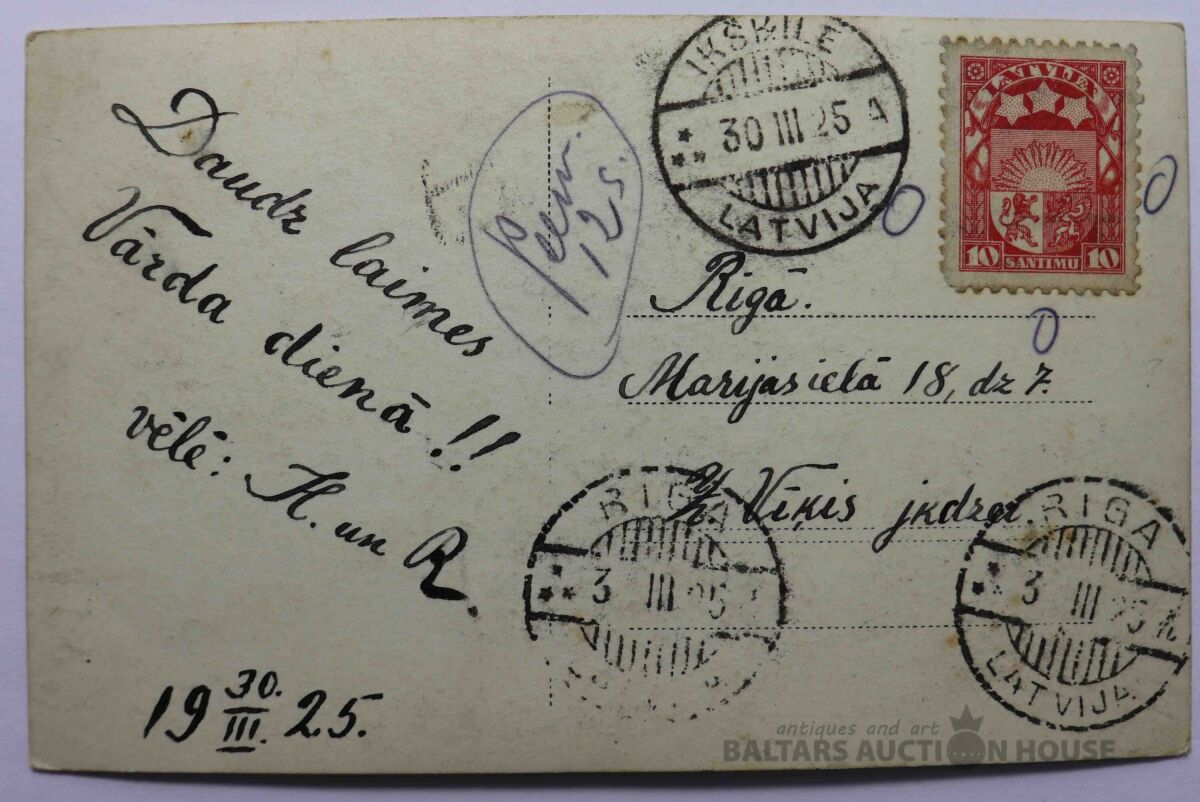 Daudz laimes
Vārda dienā!!
vēlē: H. un R.
19 30./III. 25.
T
12 s.
IKŠĶILE
30 III 25 A
LATVIJA
LATVIJA
10 SANTIMU 10
Rigā.
Marijas ielā 18, dz 7.
Vīķis jkdzei.
RIGA
3 III 25
RIGA
3 III 25
LATVIJA
antiques and art
BALTARS AUCTION HOUSE